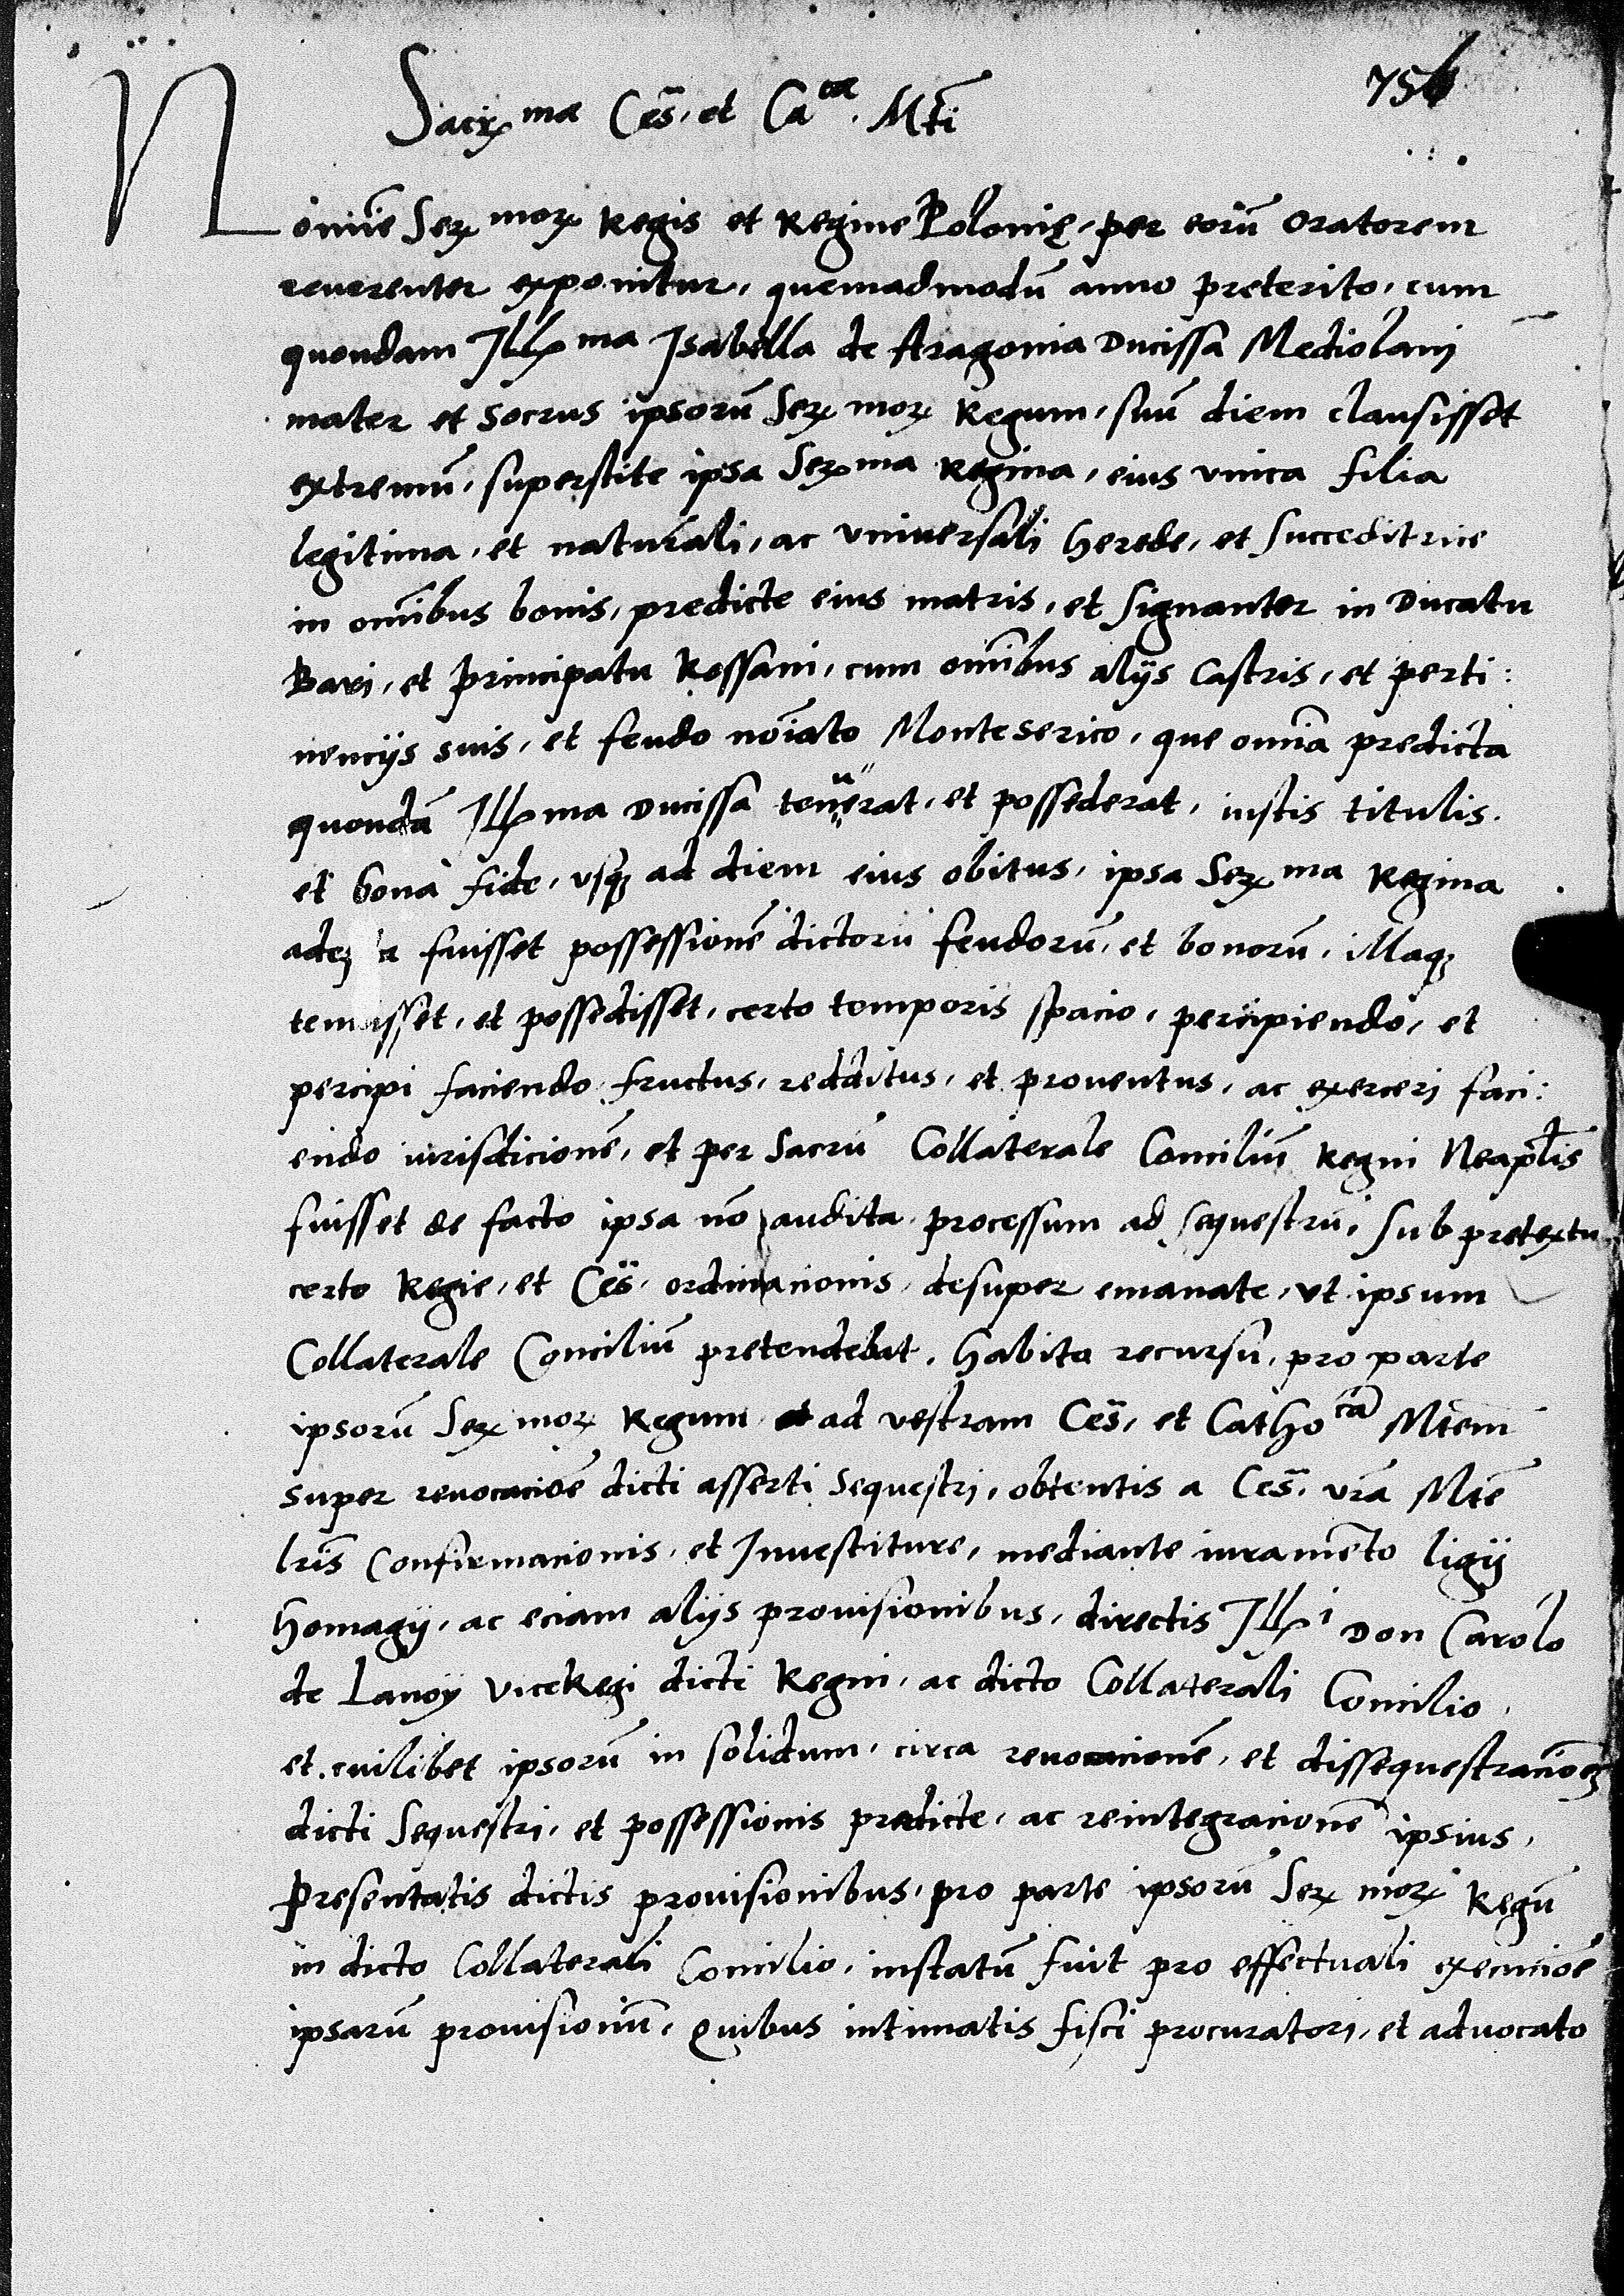 756
Sacr ma Ces. et Ca ca. Mti
Nomie Ser mor Regis et Regine Polonię, per eorū oratorem
reuerenter exponitur, quemadmodū anno preterito, cum
quondam Ill ma Isabella de Aragonia Ducissa Mediolanj
mater et socrus ipsorū Ser mor Regum, suū diem clausisset
extremū, superstite ipsa Ser ma Regina, eius vnica filia
legitima, et naturali, ac vniuersali herede, et succeditrice
in omībus bonis, predicte eius matris, et signanter in Ducatu
Bari, et principatu Rossani, cum omībus alijs castris, et perti:
nencijs suis, et feudo noīato Monteserico, que omīa predicta
quondā Ill ma Ducissa tenuerat, et possederat, iustis titulis.
et bona fide, vsq ad diem eius obitus, ipsa Ser ma Regina
fuisset possessionē dictorū feudorū, et bonorū, illaq
tenuisset, et possedisset, certo temporis spacio, percipiendo, et
percipi faciendo fructus, redditus, et prouentus, ac exercerj faci:
endo iurisdicionē, et per Sacrū Collaterale Concilīū Regni Neaplis
fuisset de facto ipsa nō audita processum ad sequestrū, sub pretextu
certe Regie, et Ces. ordinacionis, desuper emanate, vt ipsum
Collaterale Conciliū pretendebat, habito recursu, pro parte
ipsorū Ser mor Regum ad vestram Ces, et Catho ca Mtem
super reuocacioē dicti asserti sequestrj, obtentis a Ces. vrā Mtē
lris confirmacionis, et Inuestiture, mediante iuramēto ligij
homagij, ac eciam alijs prouisionibus, directis Ill i Don Carolo
de Lanoy viceRegi dicti Regni, ac dicto Collaterali Concilio,
et cuilibet ipsorū in solidum, circa reuocacionē, et dissequestracionē
dicti sequestri, et possessionis predicte, ac reintegracionē ipsius,
Presentatis dictis prouisionibus, pro parte ipsorū Ser mor Regū
in dicto Collaterali Concilio, instatū fuit pro effectuali execucioē
ipsarū prouisionū, Quibus intimatis fisci procuratorj, et aduocato